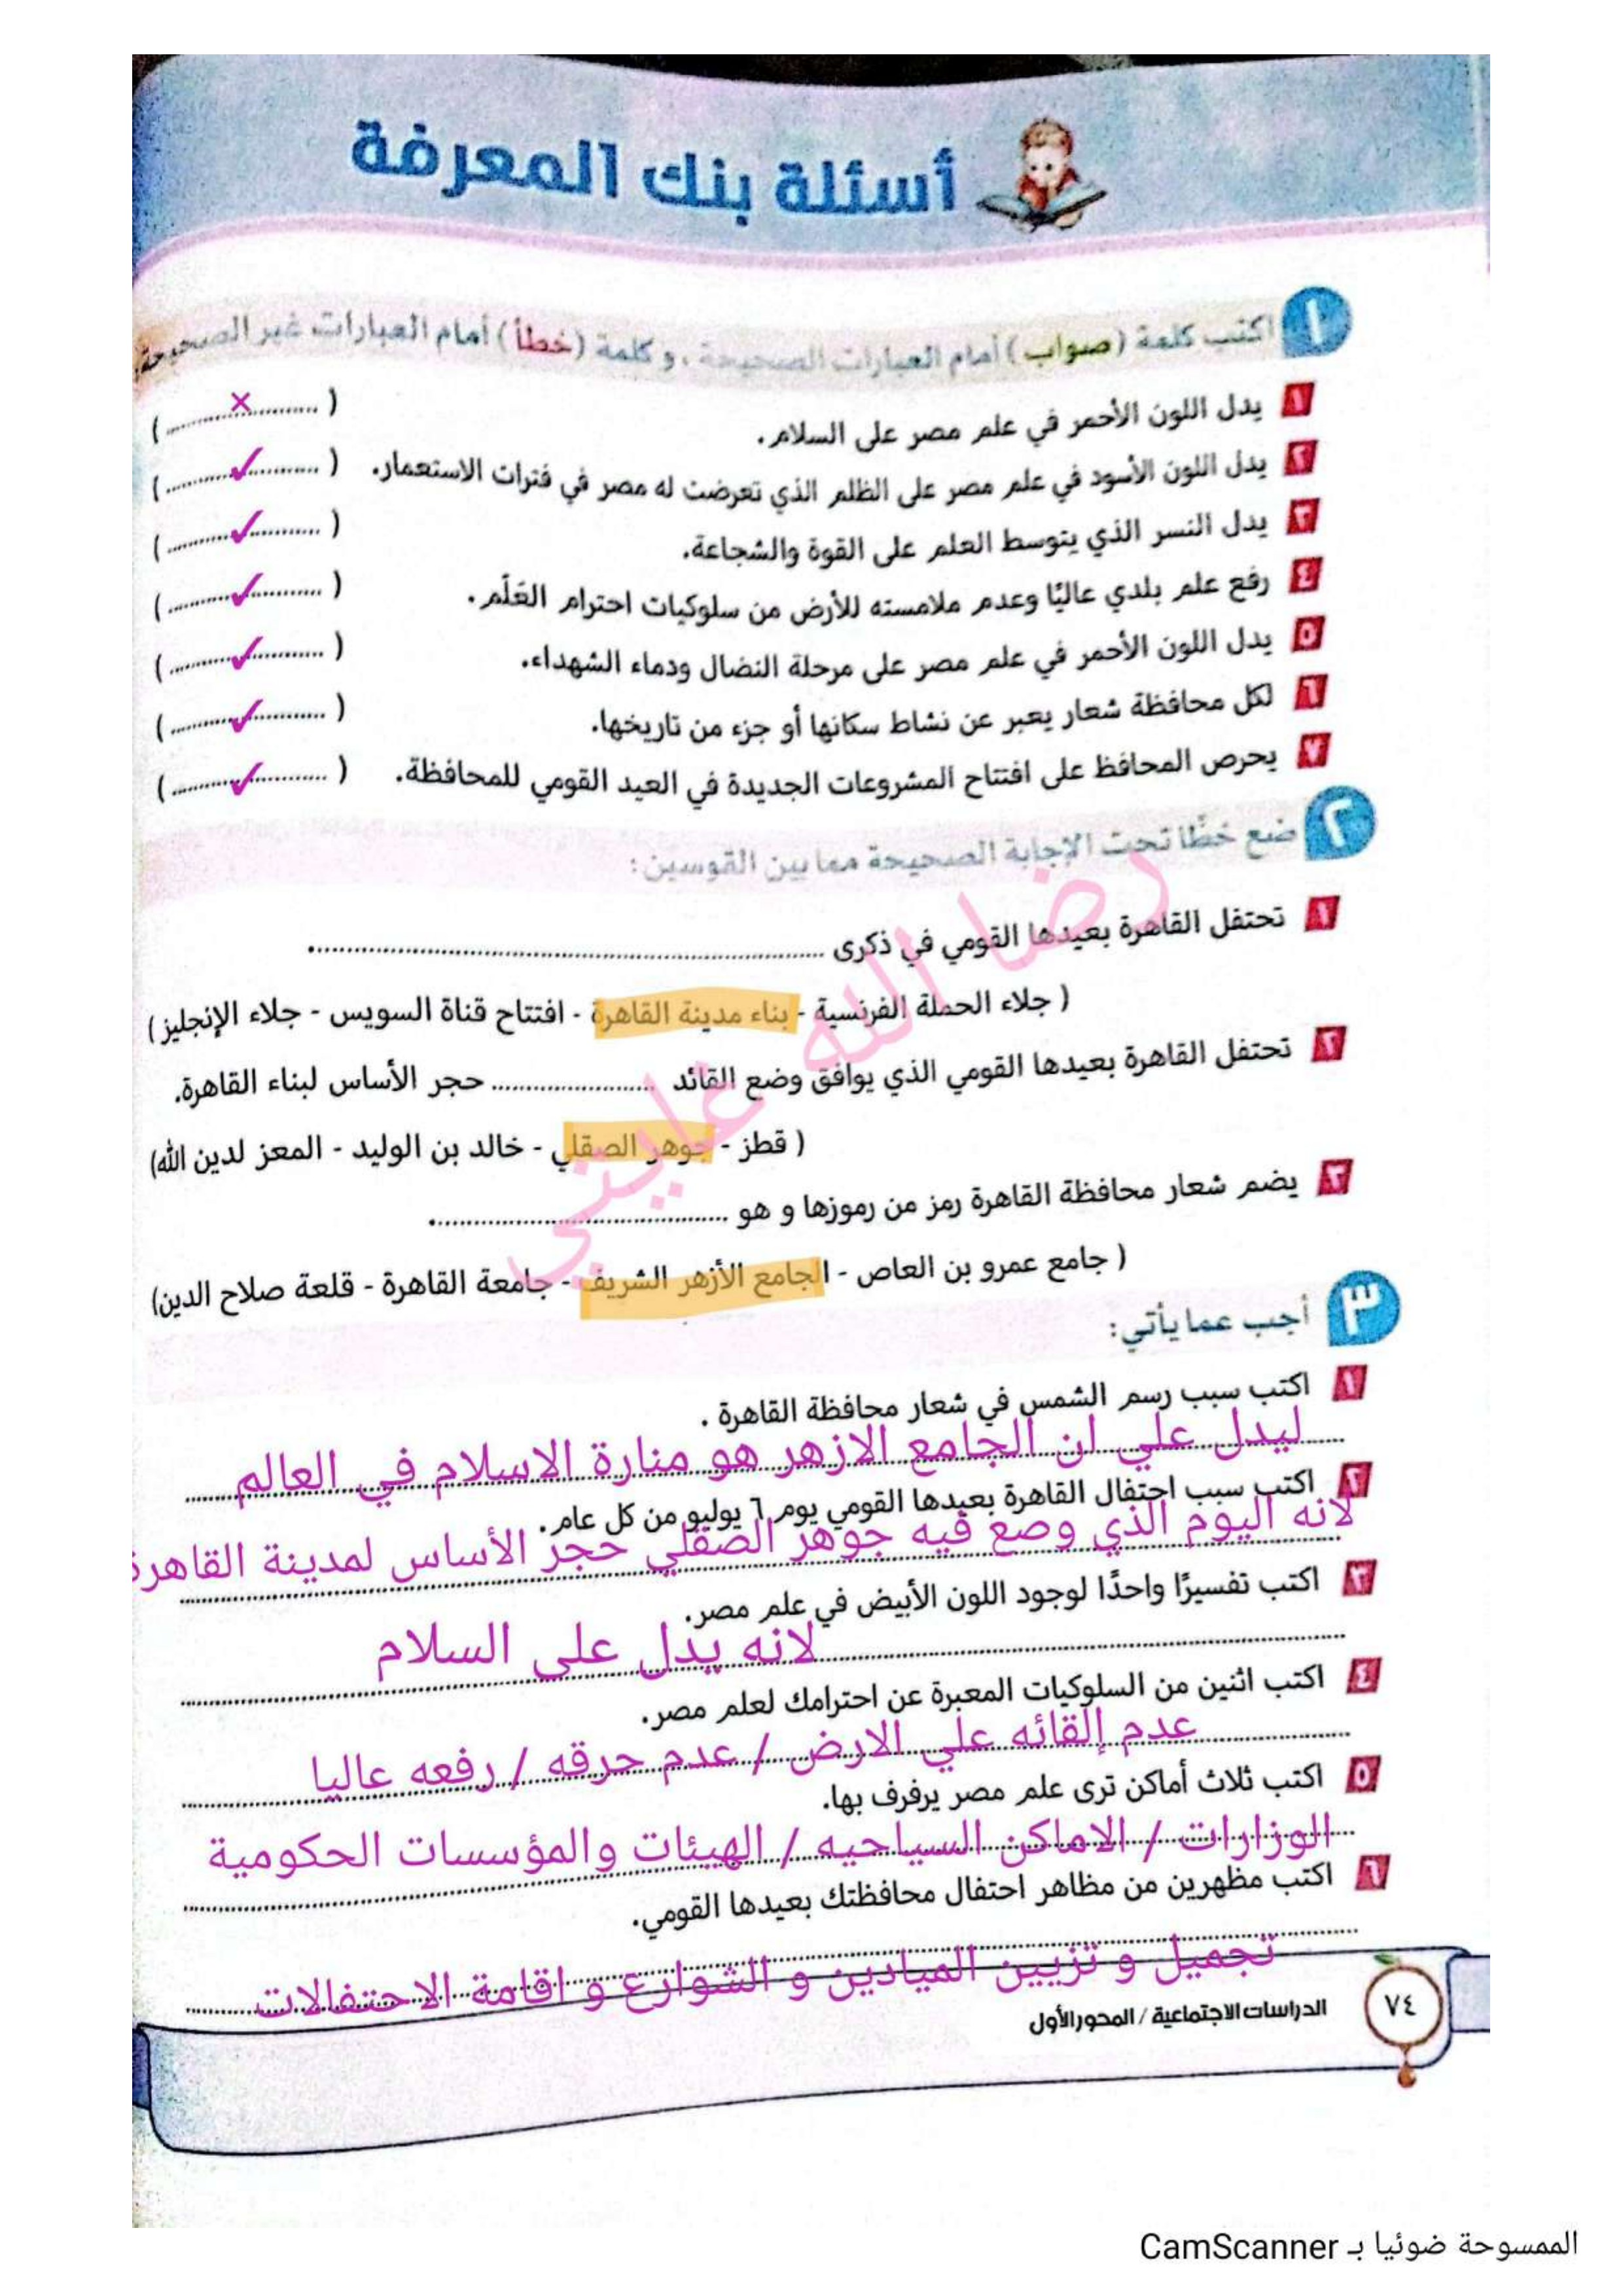 أسئلة بنك المعرفة
١ اكتب كلمة (صواب) أمام العبارات الصحيحة، و كلمة (خطأ) أمام العبارات غير الصحيحة:
١ يدل اللون الأحمر في علم مصر على السلام. (........×........)
٢ يدل اللون الأسود في علم مصر على الظلم الذي تعرضت له مصر في فترات الاستعمار. (........✓........)
٣ يدل النسر الذي يتوسط العلم على القوة والشجاعة. (........✓........)
٤ رفع علم بلدي عاليًا وعدم ملامسته للأرض من سلوكيات احترام العَلَم. (........✓........)
٥ يدل اللون الأحمر في علم مصر على مرحلة النضال ودماء الشهداء. (........✓........)
٦ لكل محافظة شعار يعبر عن نشاط سكانها أو جزء من تاريخها. (........✓........)
٧ يحرص المحافظ على افتتاح المشروعات الجديدة في العيد القومي للمحافظة. (........✓........)
٢ ضع خطًا تحت الإجابة الصحيحة مما بين القوسين:
١ تحتفل القاهرة بعيدها القومي في ذكرى ........................
( جلاء الحملة الفرنسية - بناء مدينة القاهرة - افتتاح قناة السويس - جلاء الإنجليز)
٢ تحتفل القاهرة بعيدها القومي الذي يوافق وضع القائد ................ حجر الأساس لبناء القاهرة.
( قطز - جوهر الصقلي - خالد بن الوليد - المعز لدين الله)
٣ يضم شعار محافظة القاهرة رمز من رموزها و هو ........................
( جامع عمرو بن العاص - الجامع الأزهر الشريف - جامعة القاهرة - قلعة صلاح الدين)
رضا الله غايتي
٣ أجب عما يأتي:
١ اكتب سبب رسم الشمس في شعار محافظة القاهرة .
ليدل علي ان الجامع الازهر هو منارة الاسلام في العالم
٢ اكتب سبب احتفال القاهرة بعيدها القومي يوم ٦ يوليو من كل عام.
لانه اليوم الذي وضع فيه جوهر الصقلي حجر الأساس لمدينة القاهرة
٣ اكتب تفسيرًا واحدًا لوجود اللون الأبيض في علم مصر.
لانه يدل على السلام
٤ اكتب اثنين من السلوكيات المعبرة عن احترامك لعلم مصر.
عدم إلقائه علي الارض / عدم حرقه / رفعه عاليا
٥ اكتب ثلاث أماكن ترى علم مصر يرفرف بها.
الوزارات / الاماكن السياحيه / الهيئات والمؤسسات الحكومية
٦ اكتب مظهرين من مظاهر احتفال محافظتك بعيدها القومي.
تجميل و تزيين الميادين و الشوارع و اقامة الاحتفالات
٧٤ الدراسات الاجتماعية / المحور الأول
الممسوحة ضوئيا بـ CamScanner